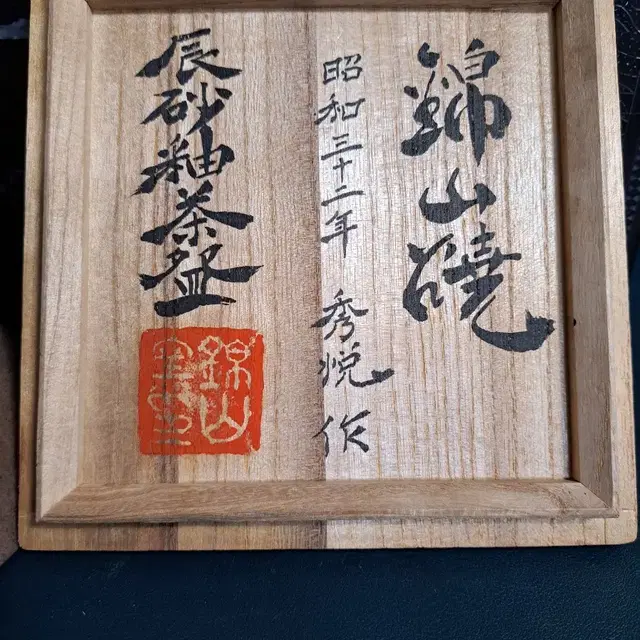 錦山燒
昭和三十二年 秀悦作
辰砂釉茶盌
錦山